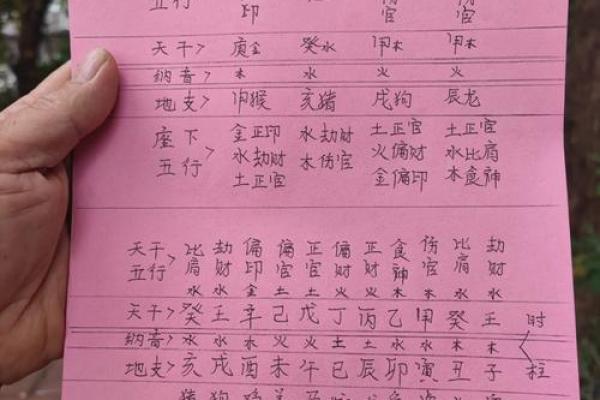 五行 印 伤官 伤官
天干> 庚金 癸水 甲木 甲木
纳音> 木 水 火 火
地支> 申猴 亥猪 戌狗 辰龙
座下五行> 金正印 水劫财 土正官 土正官
水劫财 木伤官 火偏财 水比肩
土正官 金偏印 木食神
天干五行> 比肩 劫财 偏印 偏官 正官 偏财 正财 食神 伤官 比肩 劫财
水 水 金 土 土 火 火 木 木 水 水
天干> 癸 壬 辛 己 戊 丁 丙 乙 甲 癸 壬 时
纳音> 水 水 水 火 火 土 土 水 水 木 木
地支> 亥 戌 酉 未 午 巳 辰 卯 寅 丑 子 柱
猪 狗 鸡 羊